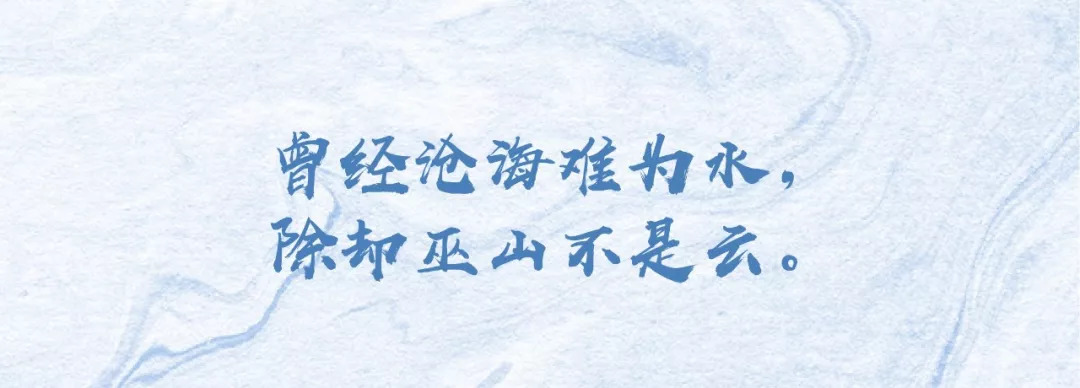 曾经沧诲难为水，
除却巫山不是云。